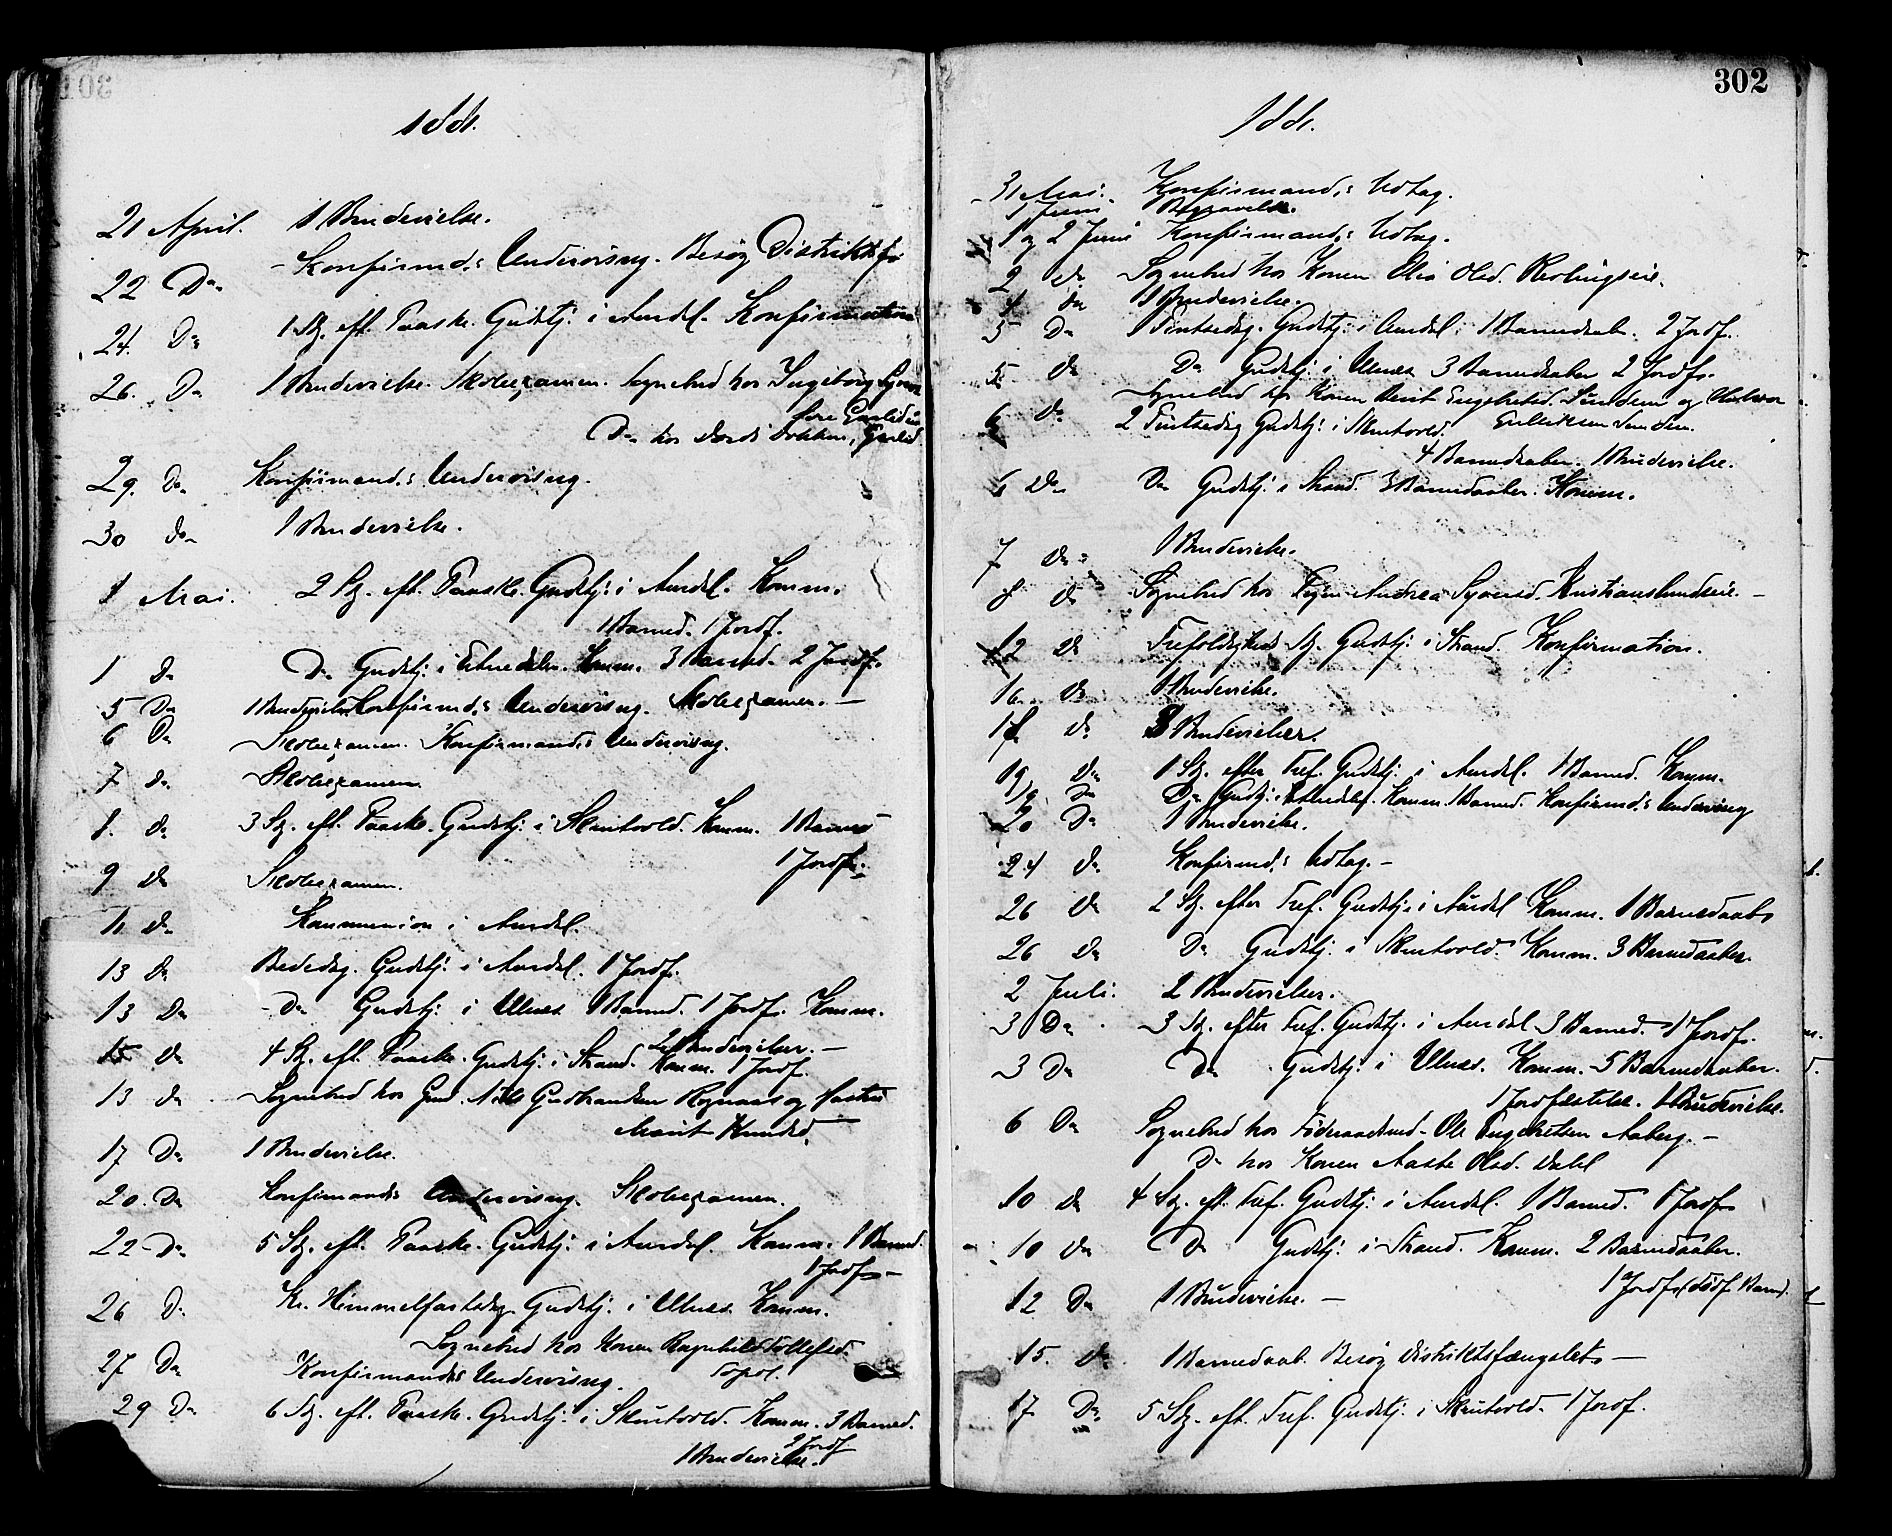 1881.
21 April. 1 Brudevielse.
22 Do. Konfirmd.s Undervisng. Besøg Distriktsf.
24. Do 1 Sg. eft. Paaske. Gudstj. i Aurdal. Konfirmation
26. Do 1 Brudevielse. Skoleexamen. Sognebud hos Ingeborg
Do hos
29. Do Konfirmand.s Undervisng.
30 do 1 Brudevielse.
1 Mai. 2 Sg. eft. Paaske. Gudstj. i Aurdal. Komm.
1 Barned. 1 Jordf.
1 Do Do Gudstj. i Etnedalen. Komm. 3 Barned. 2 Jordf.
5 Do 1 Brudevielse Konfirmd.s Undervisng. Skoleexamen. —
6 Do Skoleexamen. Konfirmand.s Undervisng.
7 do. Skoleexamen
8. do 3 Sg. eft. Paaske. Gudstj. i Skrutvold. Komm. 1 Barned
1 Jordf.
9 Do Skoleexamen.
11 do Kommunion i Aurdal.
13 Do Bededag. Gudstj. i Aurdal. 1 Jordf.
13 Do Do Gudstj. i Ulnæs. 1 Barned. 1 Jordf. Komm.
2 Brudevielser. —
15 do 4 Sg. eft. Paaske. Gudstj. i Strand. Komm. 1 Jordf.
13 do Sognebud hos Gmd. Nils Gudbrandsen Rognaas og
Marit Knudsd.
17 Do 1 Brudevielse.
20. Do Konfirmandes Undervisng. Skoleexamen.
22 Do 5 Sg. eft. Paaske. Gudstj. i Aurdal. Komm. 1 Barned.
1 Jordf. —
26 D. Kr. Himmelfartsdag Gudstj. i Ulnæs. Komm.
Sognebud hos Konen Ragnhild Tollefsd.
27 Do Konfirmandes Undervisng.
29 Do 6 Sg. eft. Paaske. Gudstj. i Skrutvold. Komm. 3 Barned.
2 Jordf
1 Brudevielse.
302
1881.
31 Mai. Konfirmand.s Udtag.
1 Juni 1 Begravelse.
1 og 2 Juni Konfirmand.s Udtag.
2 do Sognebud hos Konen Olsd.
4 do 1 Brudevielse.
5 Do 1 Pintsedag. Gudstj. i Aurdal. 1 Barnedaab. 2 Jordf.
5 do Do Gudstj. i Ulnæs 3 Barnedaaber 2 Jordf.
Sognebud hos Konen Berit Engebretsd. Sundem og
6 do 2 Pintsedag Gudstj. i Skrutvold. Eriksen Sundem.
4 Barnedaaber. 1 Brudevielse.
6 Do Do Gudstj. i Strand. 3 Barnedaaber. Komm.
7 do 1 Brudevielse.
8 do Sognebud hos Pigen Andrea Syversd. Kristianslundseie. —
12 do Trefoldigheds Sg. Gudstj. i Strand. Konfirmation.
16. do 1 Brudevielse.
18 do 3 Brudevielser.
19 do 1 Sg. efter Tref. Gudstj. i Aurdal. 1 Barned. Komm.
19 do Do Gudstj. i Etnedalen. Komm. 1 Barned. Konfirmd.s Undervisng
20 Do 1 Brudevielse.
24 do Konfirmd.s Udtag. —
26 do 2 Sg. efter Tref. Gudstj. i Aurdal Komm. 1 Barnedaab
26 do Do Gudstj. i Skrutvold. Komm. 3 Barnedaaber.
2 Juli. 2 Brudevielser.
3 Do 3 Sg. efter Tref. Gudstj. i Aurdal 3 Barned. 1 Jordf.
3 Do Do Gudstj. i Ulnæs. Komm. 5 Barnedaaber.
1 Jordfæstelse. 1 Brudevielse.
6 Do Sognebud hos Føderaadsmd. Ole Engebretsen Aaberg. —
Do hos Konen Aaste Olsd. Dahl
10 do 4 Sg. eft. Tref. Gudstj. i Aurdal. 1 Barned. 1 Jordf.
10 do Do Gudstj. i Strand. Komm. 2 Barnedaaber.
1 Jordf. (dødf. Barn)
12 Do 1 Brudevielse. —
15. do 1 Barnedaab. Besøg Distriktsfængslet. —
17 Do 5 Sg. eft. Tref. Gudstj. i Skrutvold. 1 Jordf.